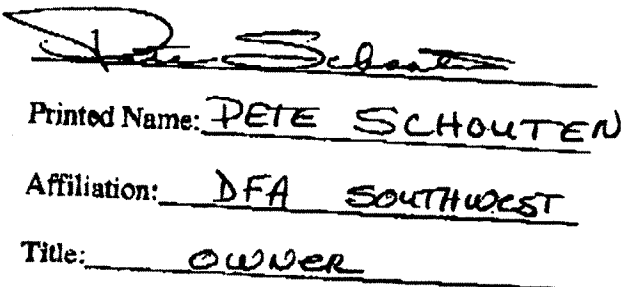 Pete Schouten
Printed Name: PETE SCHOUTEN
Affiliation: DFA SOUTHWEST
Title: OWNER